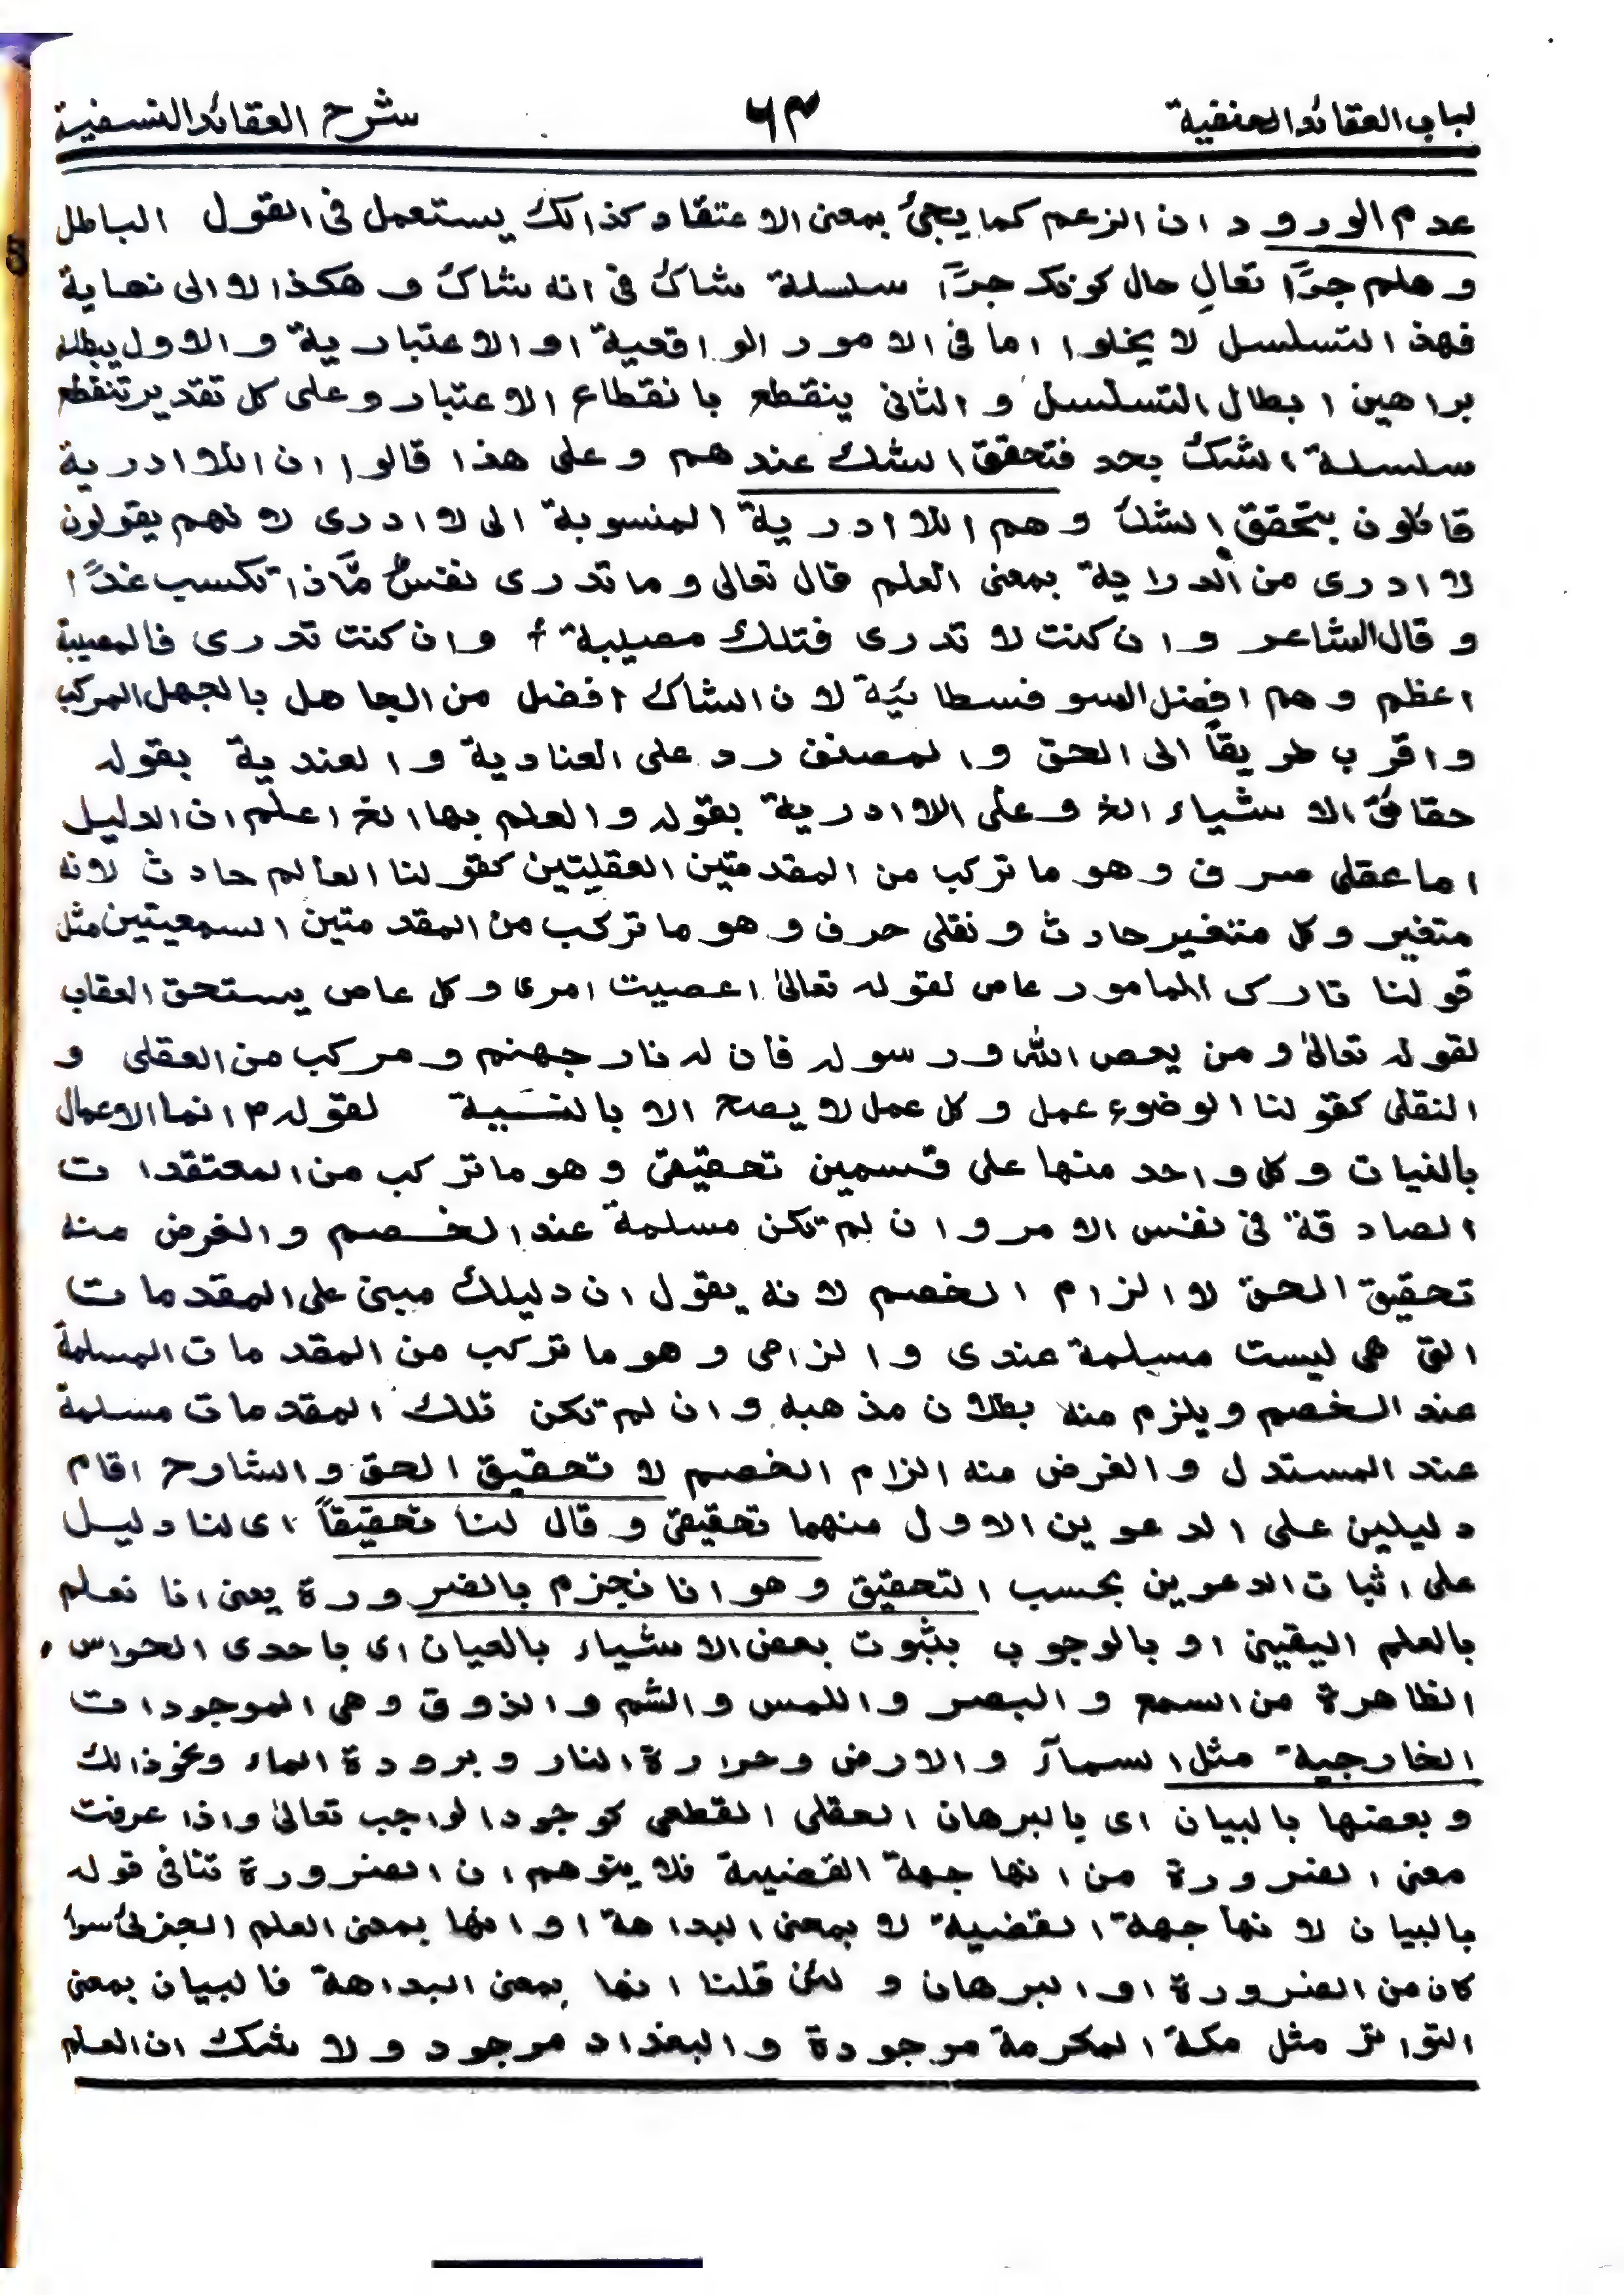 لباب العقائد الحنفية ٦٣ شرح العقائد النسفية
عدم الورود ان الزعم كما يجئ بمعنى الاعتقاد كذالك يستعمل فى القول الباطل
و هلم جرّا تعالِ حال كونك جرّاً سلسلة شاك فى انه شاك و هكذا لا الى نهاية
فهذ التسلسل لا يخلوا اما فى الامور الواقعية او الاعتبارية و الاول يبطله
براهين ابطال التسلسل و الثانى ينقطع بانقطاع الاعتبار و على كل تقدير تنقطع
سلسلة الشك بحد فتحقق الشك عندهم و على هذا قالوا ان اللاادرية
قائلون بتحقق الشك و هم اللاادرية المنسوبة الى لا ادرى لانهم يقولون
لا ادرى من الدراية بمعنى العلم قال تعالى و ما تدرى نفسٌ مّاذا تكسب غدًا
و قال الشاعر و ان كنت لا تدرى فتلك مصيبة و ان كنت تدرى فالمصيبة
اعظم و هم افضل السوفسطائية لان الشاك افضل من الجاهل بالجهل المركب
و اقرب طريقاً الى الحق و المصنف رد على العنادية و العندية بقوله
حقائق الاشياء الخ و على اللاادرية بقوله و العلم بها الخ اعلم ان الدليل
اما عقلى صرف و هو ما تركب من المقدمتين العقليتين كقولنا العالم حادث لانه
متغير و كل متغير حادث و نقلى صرف و هو ما تركب من المقدمتين السمعيتين مثل
قولنا تارك المامور عاص لقوله تعالىٰ اعصيت امرى و كل عاص يستحق العقاب
لقوله تعالىٰ و من يعص الله و رسوله فان له نار جهنم و مركب من العقلى و
النقلى كقولنا الوضوء عمل و كل عمل لا يصح الا بالنسية لقوله ؐ انما الاعمال
بالنيات و كل واحد منها على قسمين تحقيقى و هو ما تركب من المعتقدات
الصادقة فى نفس الامر و ان لم تكن مسلمة عند الخصم و الغرض منه
تحقيق الحق لا الزام الخصم لانه يقول ان دليلك مبنى على المقدمات
التى هى ليست مسلمة عندى و الزامى و هو ما تركب من المقدمات المسلمة
عند الخصم و يلزم منه بطلان مذهبه و ان لم تكن تلك المقدمات مسلمة
عند المستدل و الغرض منه الزام الخصم لا تحقيق الحق و الشارح اقام
دليلين على الدعوين الاول منهما تحقيقى و قال لنا تحقيقاً اى لنا دليل
على اثبات الدعوين بحسب التحقيق و هو انا نجزم بالضرورة يعنى انا نعلم
بالعلم اليقينى او بالوجوب بثبوت بعض الاشياء بالعيان اى باحدى الحواس
الظاهرة من السمع و البصر و اللمس و الشم و الذوق و هى الموجودات
الخارجية مثل السمآء و الارض و حرارة النار و برودة الماء و نحو ذالك
و بعضها بالبيان اى بالبرهان العقلى القطعى كوجود الواجب تعالىٰ و اذا عرفت
معنى الضرورة من انها جهة القضية فلا يتوهم ان الضرورة تنافى قوله
بالبيان لانها جهة القضية لا بمعنى البداهة او انها بمعنى العلم الجزئ سواء
كان من الضرورة او البرهان و لئن قلنا انها بمعنى البداهة فالبيان بمعنى
التواتر مثل مكة المكرمة موجودة و البغداد موجود و لا شك ان العلم